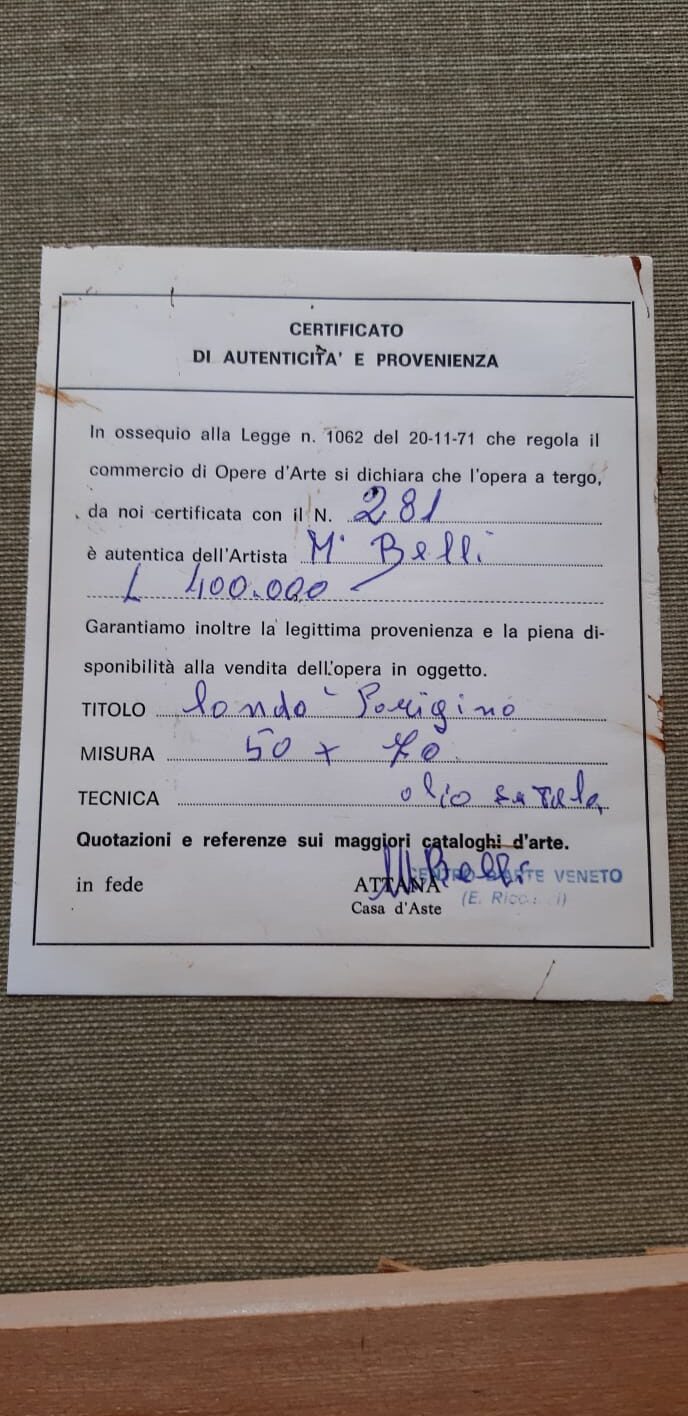 CERTIFICATO
DI AUTENTICITA' E PROVENIENZA
In ossequio alla Legge n. 1062 del 20-11-71 che regola il
commercio di Opere d'Arte si dichiara che l'opera a tergo,
da noi certificata con il N. 281
è autentica dell'Artista M. Belli
L 400.000
Garantiamo inoltre la legittima provenienza e la piena di-
sponibilità alla vendita dell'opera in oggetto.
TITOLO
MISURA 50 + 70
TECNICA olio su tela
Quotazioni e referenze sui maggiori cataloghi d'arte.
in fede ATTANA M Belli CENTRO D'ARTE VENETO
Casa d'Aste